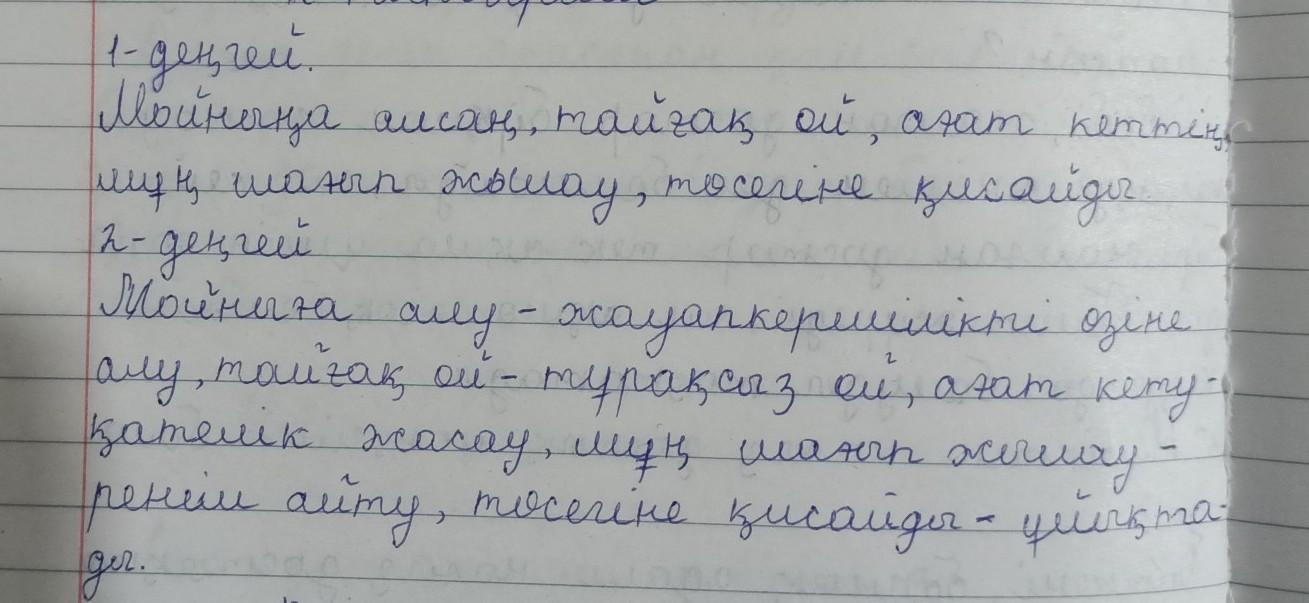 1-деңгей.
Мойныңа алсаң, тайғақ ой, ағат кеттің,
мұң шағып жылау, төсегіне қисайды
2-деңгей
Мойнына алу - жауапкершілікті өзіне
алу, тайғақ ой - тұрақсыз ой, ағат кету-
қателік жасау, мұң шағып жылау -
реніш айту, төсегіне қисайды - ұйықта-
ды.